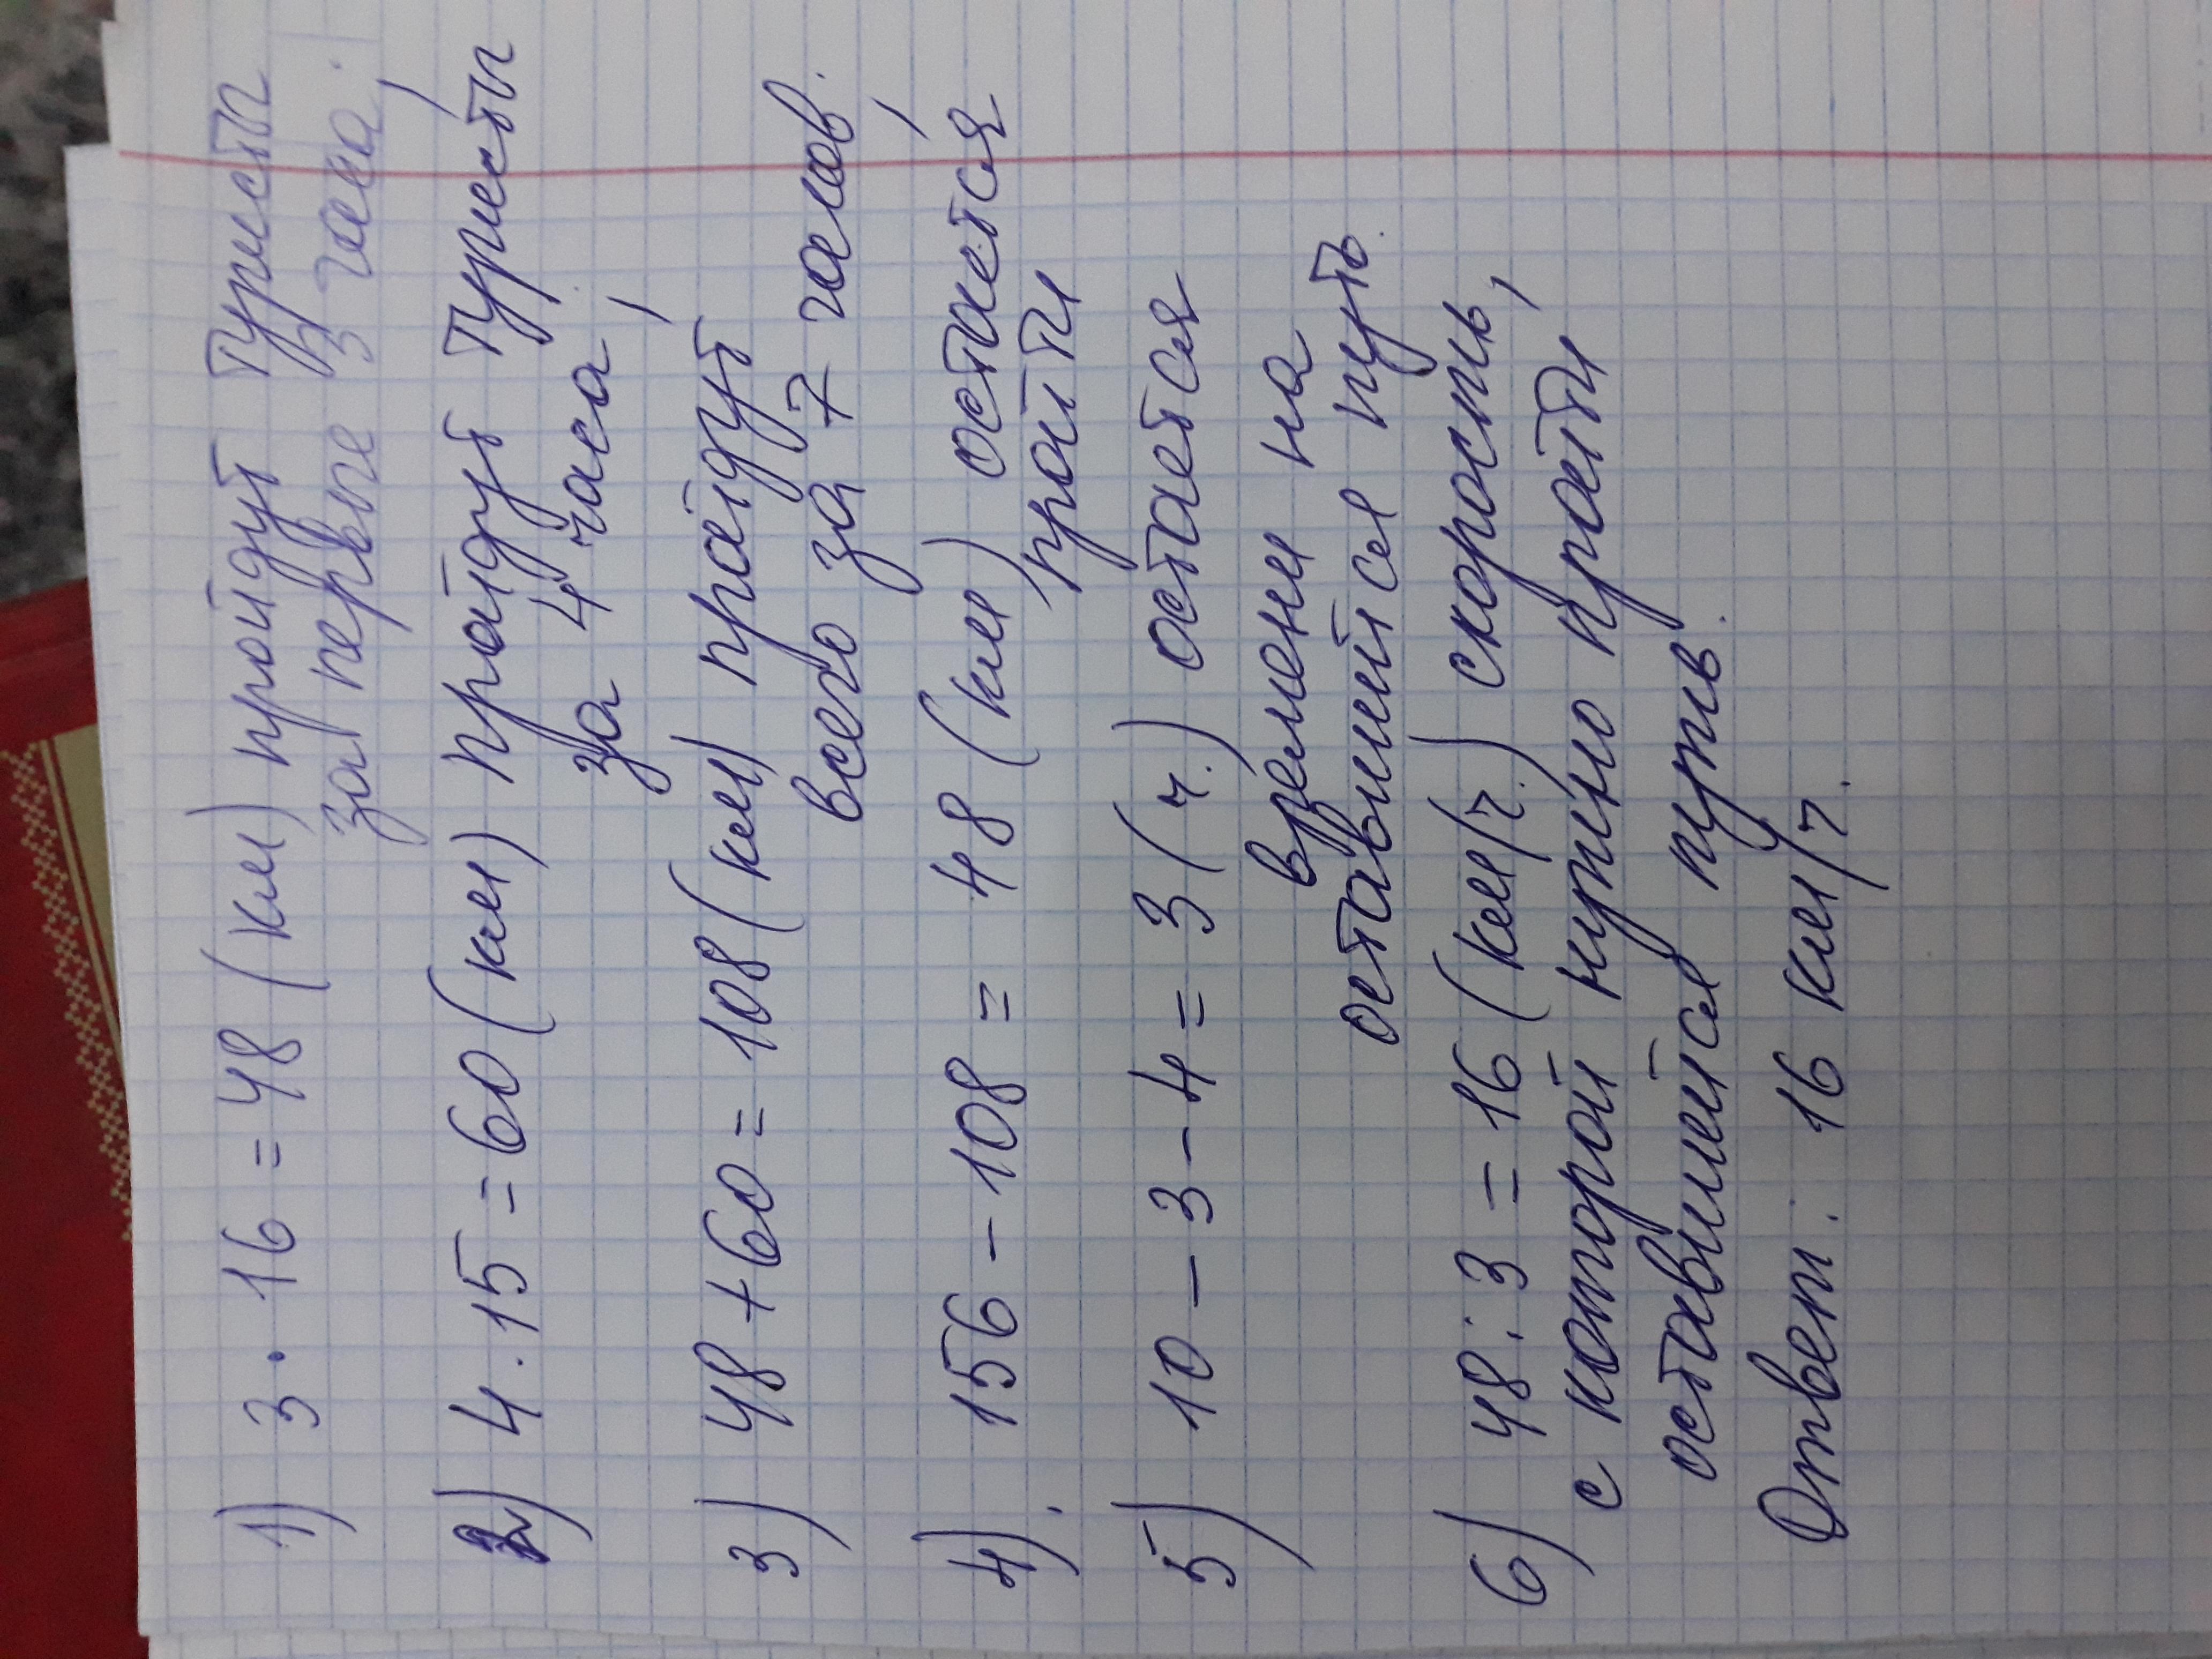 1) 3 · 16 = 48 (км) пройдут туристы
за первые 3 часа.
2) 4 · 15 = 60 (км) пройдут туристы
за 4 часа
3) 48 + 60 = 108 (км) пройдут
всего за 7 часов.
4) 156 - 108 = 48 (км) остаётся
пройти
5) 10 - 3 - 4 = 3 (ч.) остаётся
времени на
оставшийся путь.
6) 48 : 3 = 16 (км/ч.) скорость,
с которой нужно пройти
оставшийся путь.
Ответ: 16 км/ч.